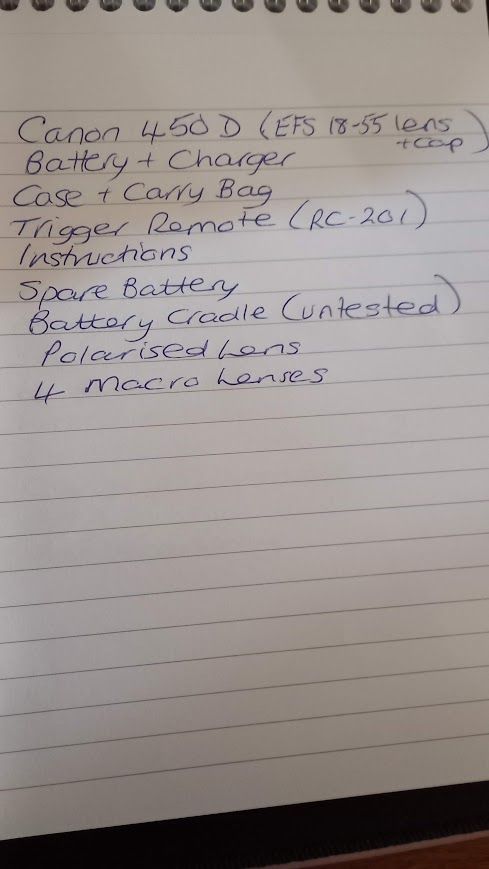 Canon 450D (EFS 18-55 lens + cap)
Battery + Charger
Case + Carry Bag
Trigger Remote (RC-201)
Instructions
Spare Battery
Battery Cradle (untested)
Polarised Lens
4 Macro Lenses